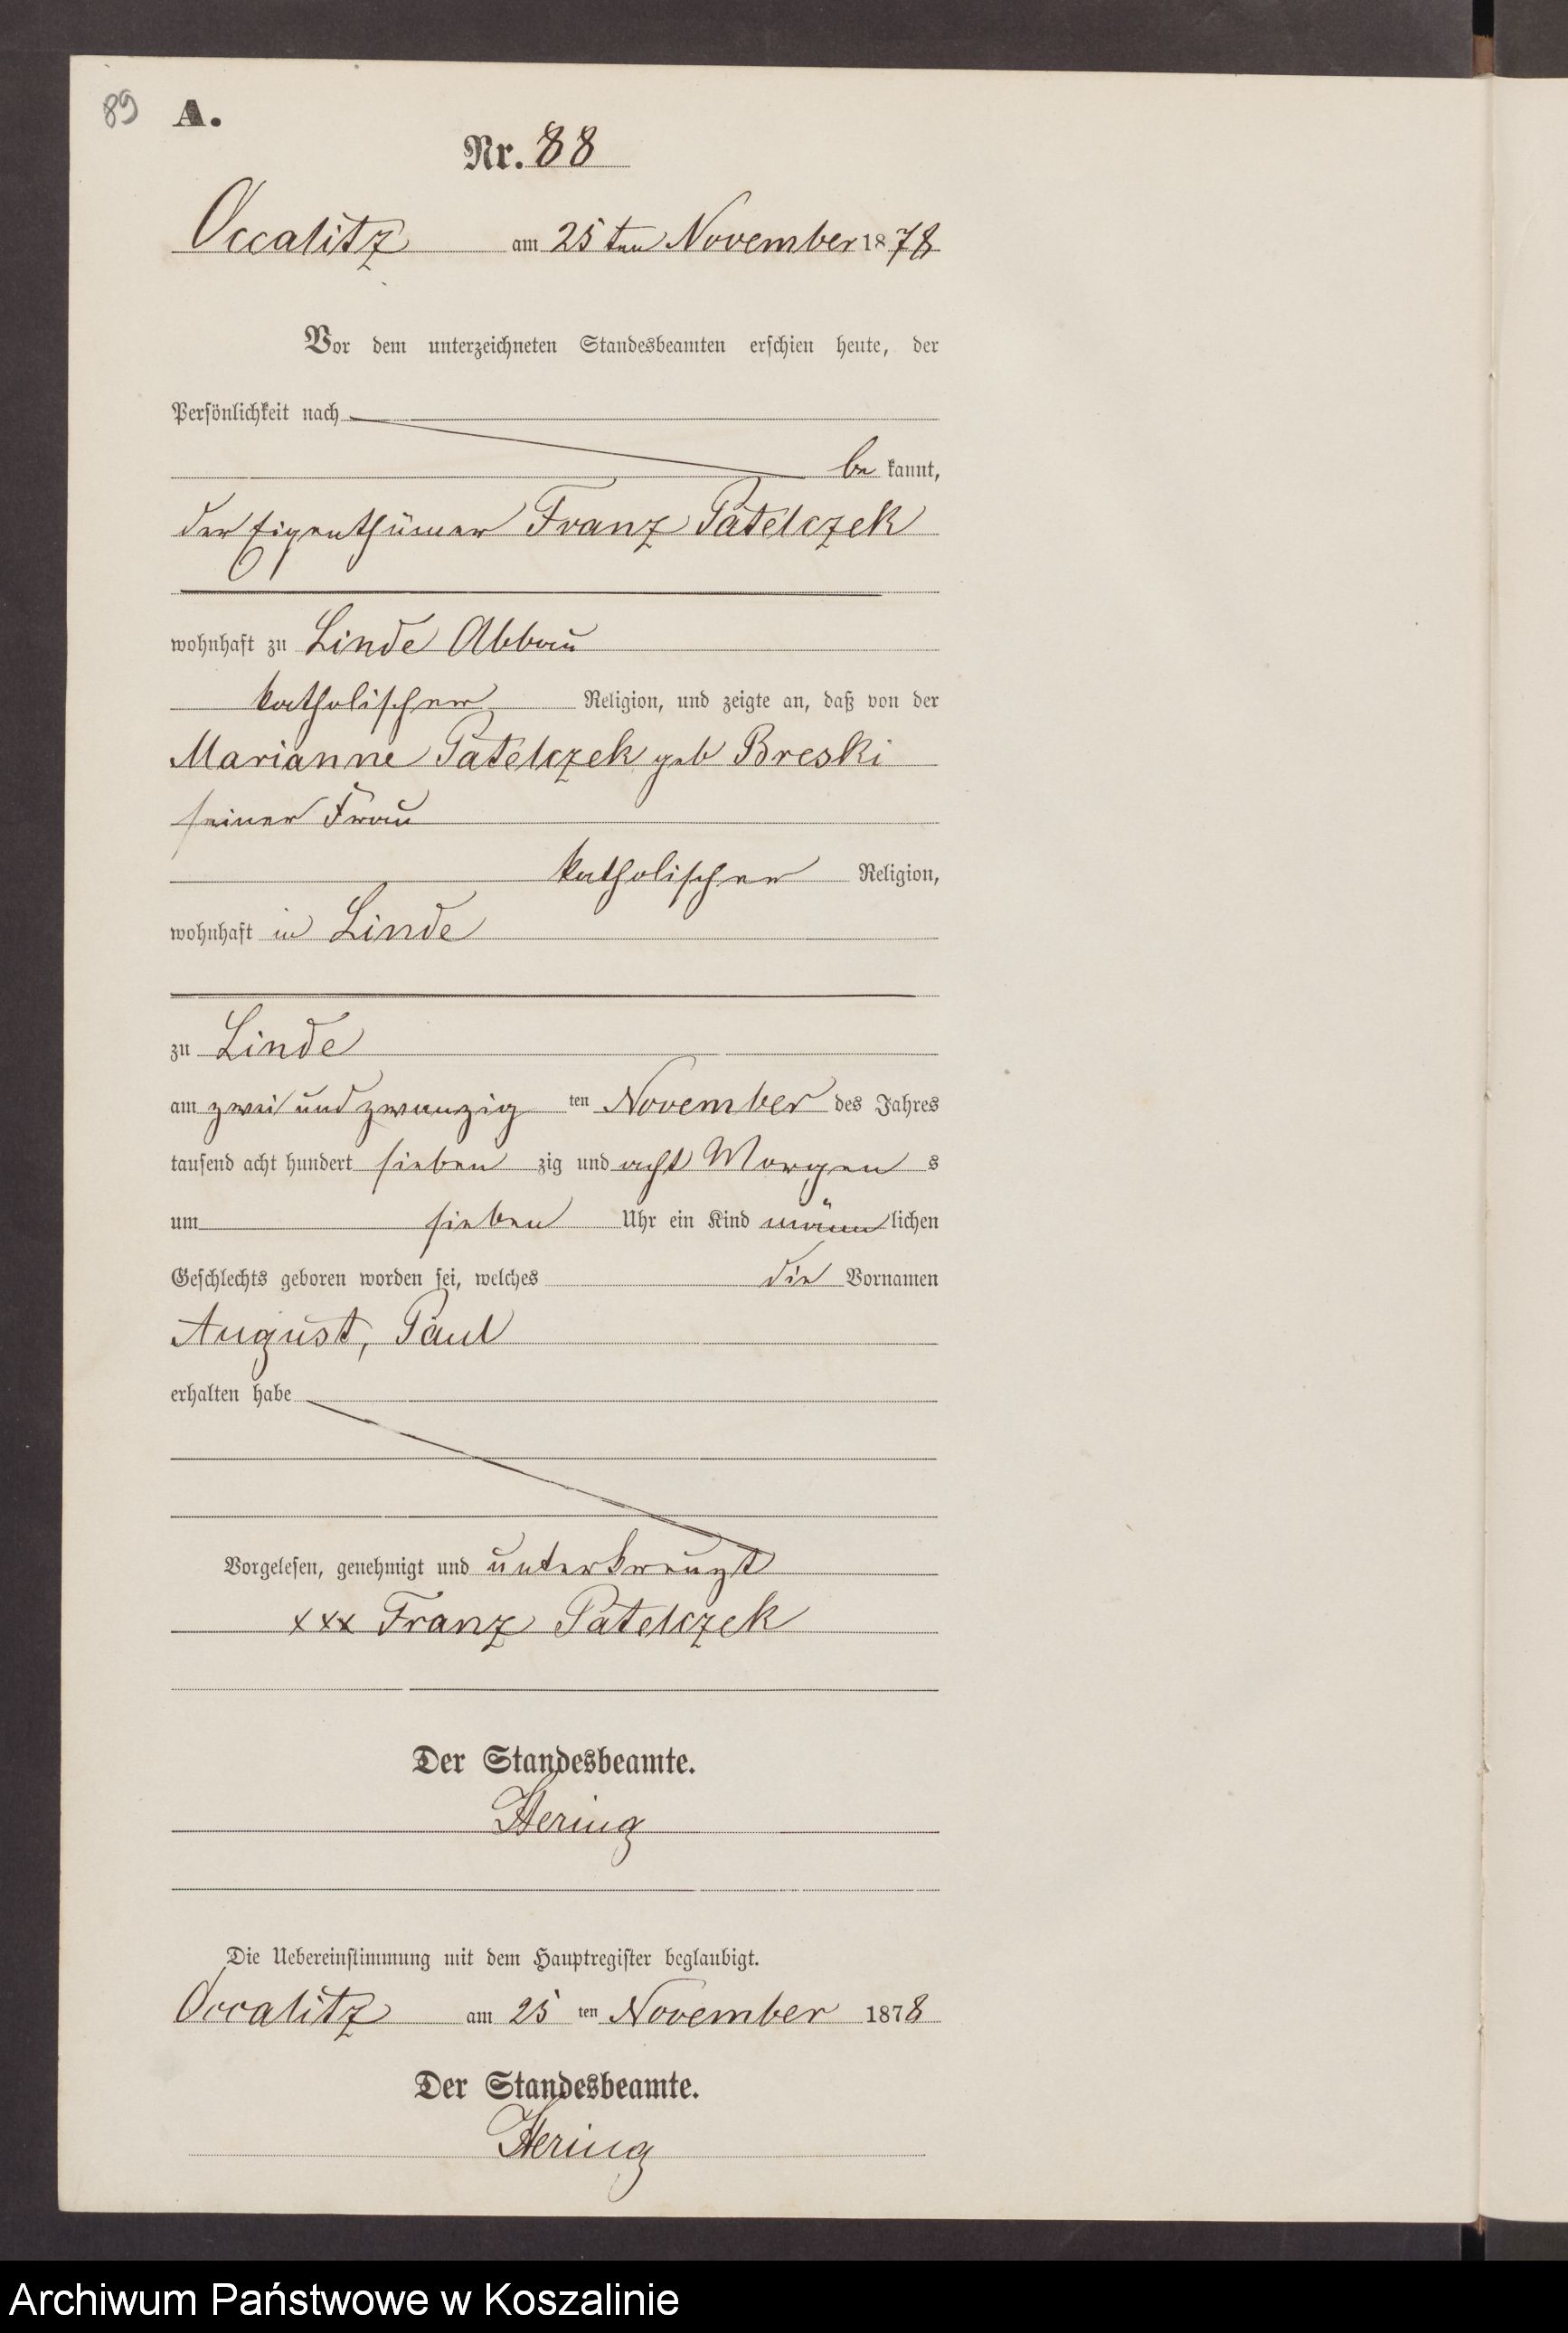 89 A.
Nr. 88
Occalitz am 25ten November 1878
Vor dem unterzeichneten Standesbeamten erschien heute, der
Persönlichkeit nach
be kannt,
der Eigenthümer Franz Patelczek
wohnhaft zu Linde Abbau
katholischer Religion, und zeigte an, daß von der
Marianne Patelczek geb Breski
seiner Frau
katholischer Religion,
wohnhaft in Linde
zu Linde
am zwei und zwanzig ten November des Jahres
tausend acht hundert sieben zig und acht Morgen s
um sieben Uhr ein Kind männ lichen
Geschlechts geboren worden sei, welches die Vornamen
August, Paul
erhalten habe
Vorgelesen, genehmigt und unterkreuzt
xxx Franz Patelczek
Der Standesbeamte.
Hering
Die Uebereinstimmung mit dem Hauptregister beglaubigt.
Occalitz am 25 ten November 1878
Der Standesbeamte.
Hering
Archiwum Państwowe w Koszalinie